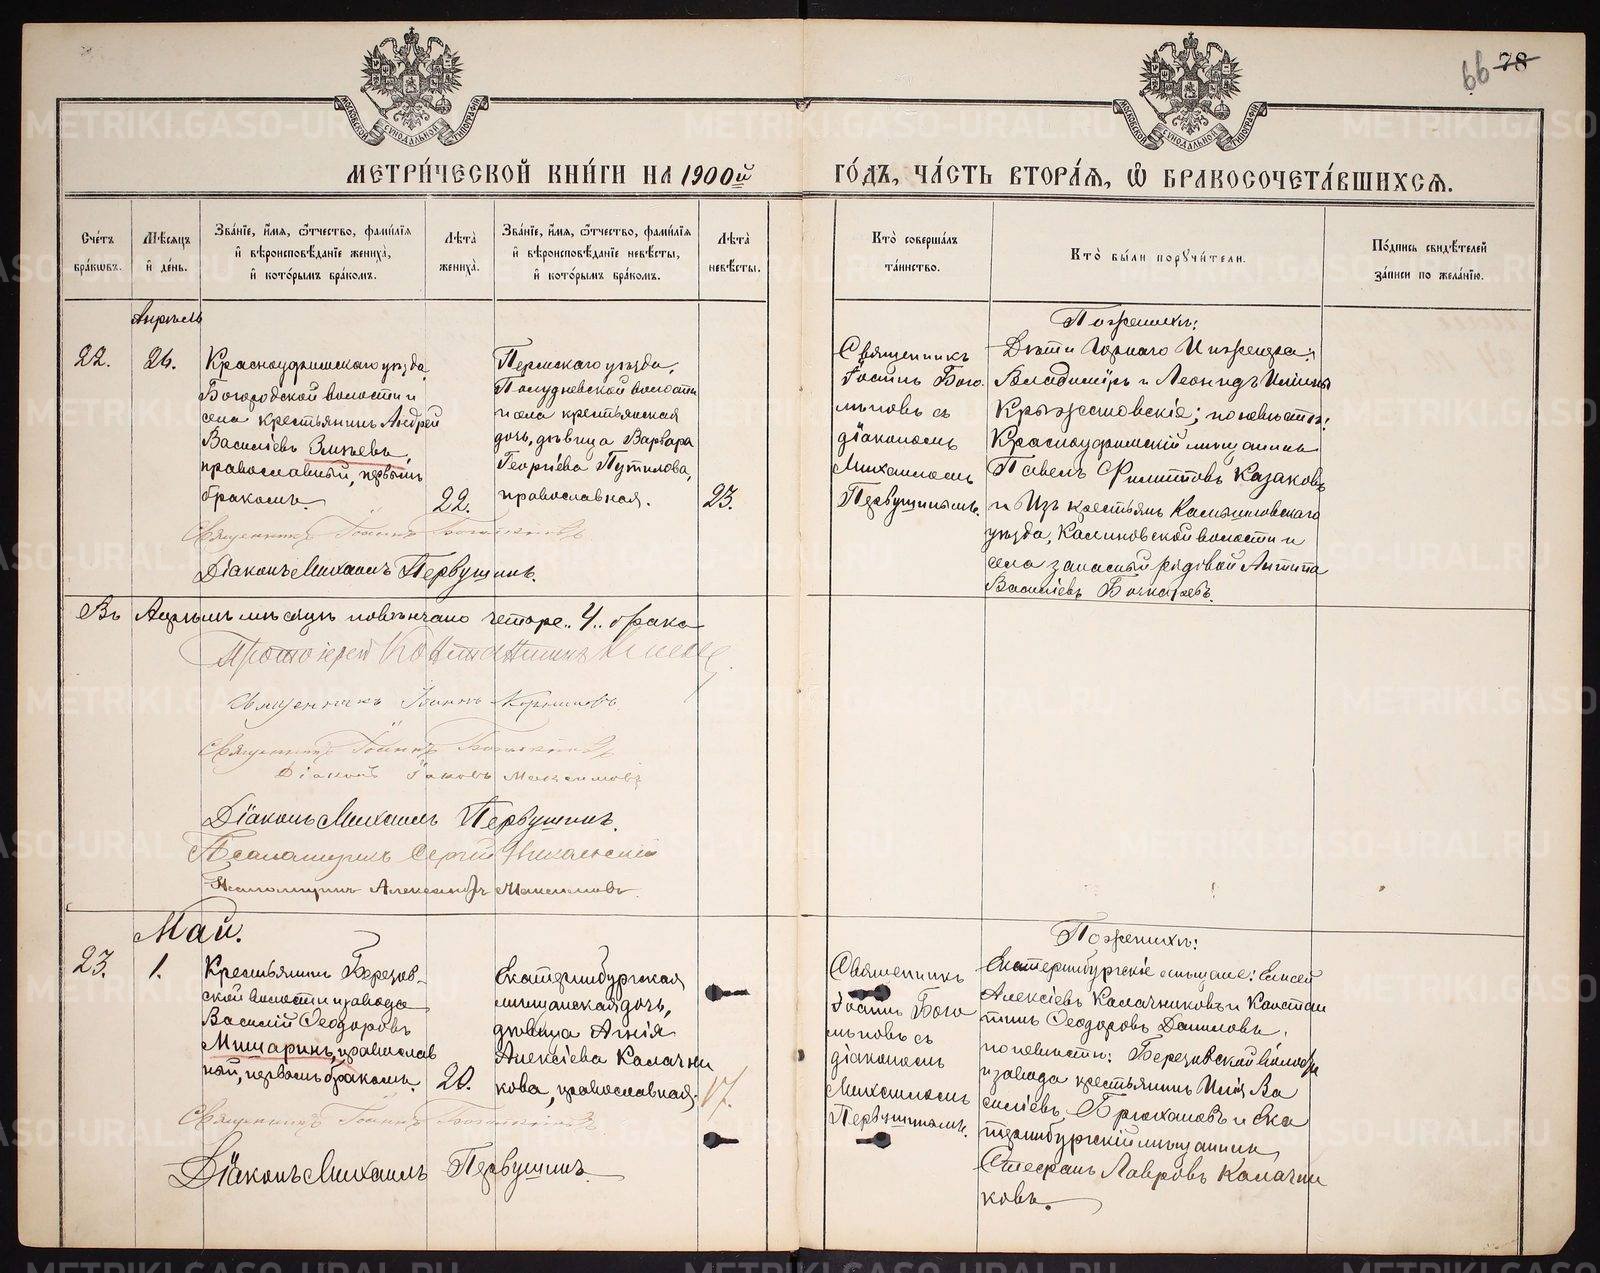 66 78
МОСКОВСКОЙ СУНОДАЛЬНОЙ ТИПОГРАФІИ
МОСКОВСКОЙ СУНОДАЛЬНОЙ ТИПОГРАФІИ
МЕТРИ́ЧЕСКОЙ КНИ́ГИ НА 1900й
ГО́ДЪ, ЧА́СТЬ ВТОРА́Я, Ѡ҆ БРАКОСОЧЕТА́ВШИХСЯ.
Сче́тъ бра́кѡвъ.
Мѣ́сяцъ и҆ де́нь.
Зва́нїе, и҆́мя, ѻ҆́тчество, фами́лїя
и҆ вѣроисповѣ́данїе жениха̀,
и҆ кото́рымъ бра́комъ.
Лѣ́та жениха̀.
Зва́нїе, и҆́мя, ѻ҆́тчество, фами́лїя
и҆ вѣроисповѣ́данїе невѣ́сты,
и҆ кото́рымъ бра́комъ.
Лѣ́та невѣ́сты.
Кто̀ соверша́лъ та́инство.
Кто̀ бы́ли порꙋчи́тели.
По́дпись свидѣ́телей за́писи по жела́нїю.
Апрѣль
22.
26.
Красноуфимскаго уѣзда,
Богородской волости и
села крестьянинъ Андрей
Василіевъ
православный, первымъ
бракомъ.
22.
Пермскаго уѣзда,
Полудневской волости
и села крестьянская
дочь, дѣвица Варвара
Георгіева Путилова,
православная.
23.
Священникъ
Іоаннъ Бого
лѣповъ съ
діакономъ
Михаиломъ
Первушинымъ.
По женихѣ:
Дѣти Горнаго Инженера:
Владиміръ и Леонидъ
Крыжановскіе; по невѣстѣ:
Красноуфимскій мѣщанинъ
Павелъ Филипповъ Казаковъ
и Изъ крестьянъ Камышловскаго
уѣзда, Калиновской волости и
села запасный рядовой Антипа
Василіевъ
Священникъ Іоаннъ Боголѣповъ
Діаконъ Михаилъ Первушинъ.
Въ Апрѣлѣ мѣсяцѣ повѣнчано четыре „4„ брака
Протоіерей Константинъ
Священникъ Іоаннъ Корниловъ
Священникъ Іоаннъ Боголѣповъ
Діаконъ Іаковъ Максимовъ
Діаконъ Михаилъ Первушинъ.
Псаломщикъ Сергій Никольскій
Псаломщикъ Александръ Максимовъ
Май.
23.
1.
Крестьянинъ Березов-
ской волости и завода
Василій Ѳеодоровъ
Мишаринъ, православ
ный, первымъ бракомъ.
20.
Екатеринбургская
мѣщанская дочь,
дѣвица Агнія
Алексіева Калачни
кова, православная.
17.
Священникъ
Іоаннъ Бого
лѣповъ съ
діакономъ
Михаиломъ
Первушинымъ.
По женихѣ:
Екатеринбургскіе мѣщане: Елисей
Алексіевъ Калачниковъ и Констан
тинъ Ѳеодоровъ Даниловъ;
по невѣстѣ: Березовской волости
и завода крестьянинъ Илія Ва
силіевъ Брюхановъ и Ека
теринбургскій мѣщанинъ
Стефанъ Лавровъ Калачни
ковъ.
Священникъ Іоаннъ Боголѣповъ
Діаконъ Михаилъ Первушинъ.
METRIKI.GASO-URAL.RU